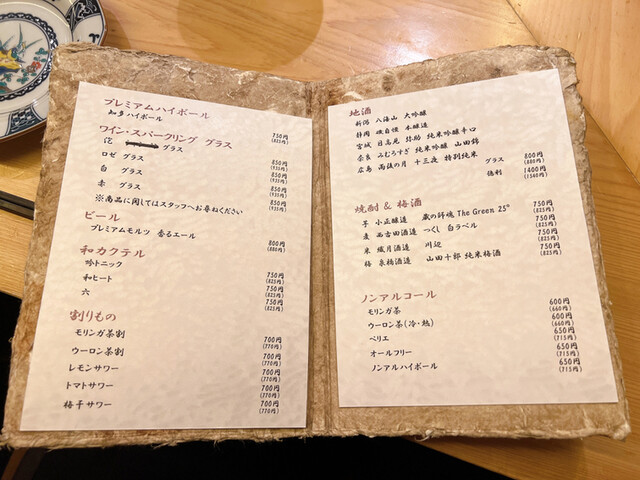 プレミアムハイボール
知多ハイボール 750円
(825円)
ワイン・スパークリング グラス
泡 グラス 850円
(935円)
ロゼ グラス 850円
(935円)
白 グラス 850円
(935円)
赤 グラス 850円
(935円)
※商品に関してはスタッフへお尋ねください
ビール
プレミアムモルツ 香るエール 800円
(880円)
和カクテル
吟トニック 750円
(825円)
和ヒート 750円
(825円)
六 750円
(825円)
割りもの
モリンガ茶割 700円
(770円)
ウーロン茶割 700円
(770円)
レモンサワー 700円
(770円)
トマトサワー 700円
(770円)
梅干サワー 700円
(770円)
地酒
新潟 八海山 大吟醸
静岡 磯自慢 本醸造
宮城 日高見 弥助 純米吟醸辛口
奈良 みむろすぎ 純米吟醸 山田錦
広島 雨後の月 十三夜 特別純米
グラス 800円
(880円)
徳利 1400円
(1540円)
焼酎 & 梅酒
芋 小正醸造 蔵の師魂 The Green 25° 750円
(825円)
麦 西吉田酒造 つくし 白ラベル 750円
(825円)
米 繊月酒造 川辺 750円
(825円)
梅 泉橋酒造 山田十郎 純米梅酒 750円
(825円)
ノンアルコール
モリンガ茶 600円
(660円)
ウーロン茶(冷・熱) 600円
(660円)
ペリエ 650円
(715円)
オールフリー 650円
(715円)
ノンアルハイボール 650円
(715円)